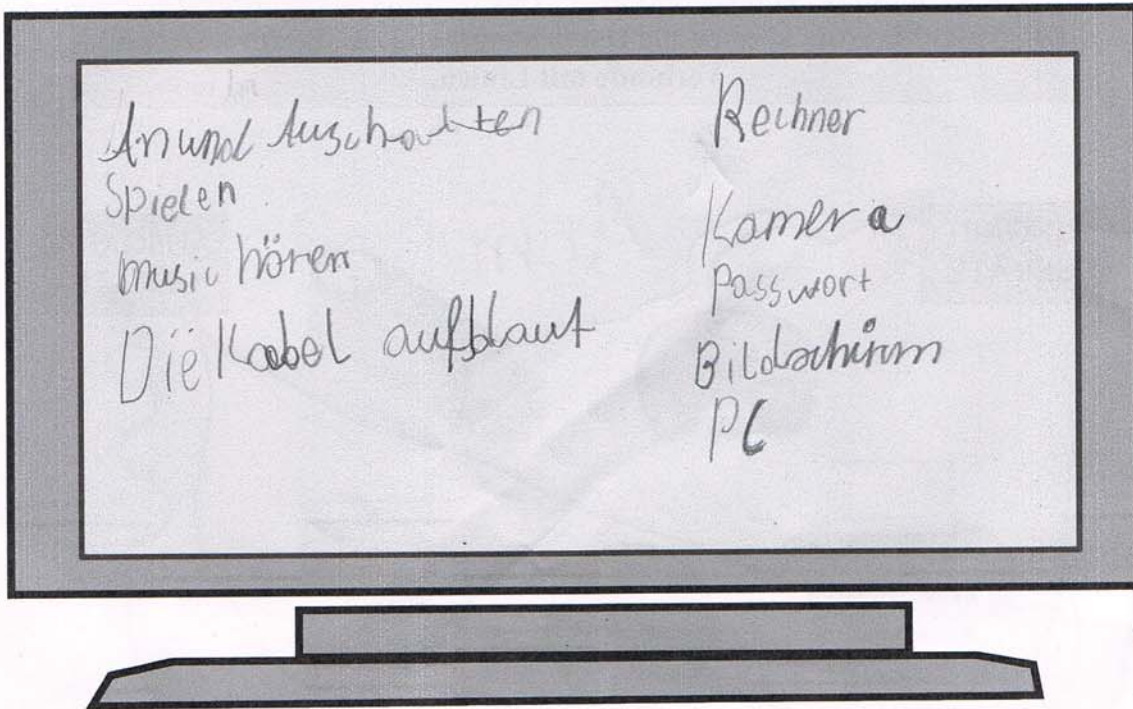 An und Auschalten
Spielen
music hören
Die Kabel aufblaut
Rechner
Kamera
Passwort
Bildschirm
PC